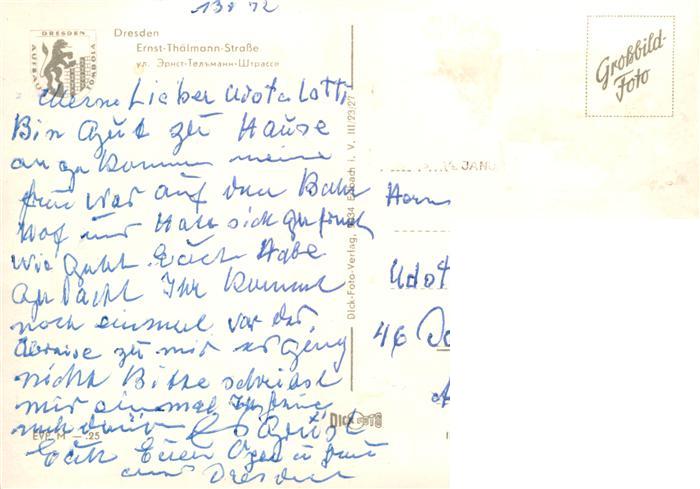 13 8 72
DRESDEN
AUFBAU
TOMBOLA
Dresden
Ernst-Thälmann-Straße
ул. Эрнст-Тельманн-Штрассе
Großbild-
Foto
Meine Lieber Udo + Lotti
Bin Gut zu Hause
an ge kommen meine
frau war auf den Bahn
Hof und Hate sich gefreud
wie geht Euch Habe
gedacht Ihr kommt
noch einmal vor der
Abreise zu mir er ging
nicht Bitte schreibt
mir einmal
es Grüst
Euch Euer u frau
aus Dresden
EVP M —.25
DICK FOTO
Dick-Foto-Verlag, 934 Erlbach i. V. III/23/27
JANU
Udo
46 Do